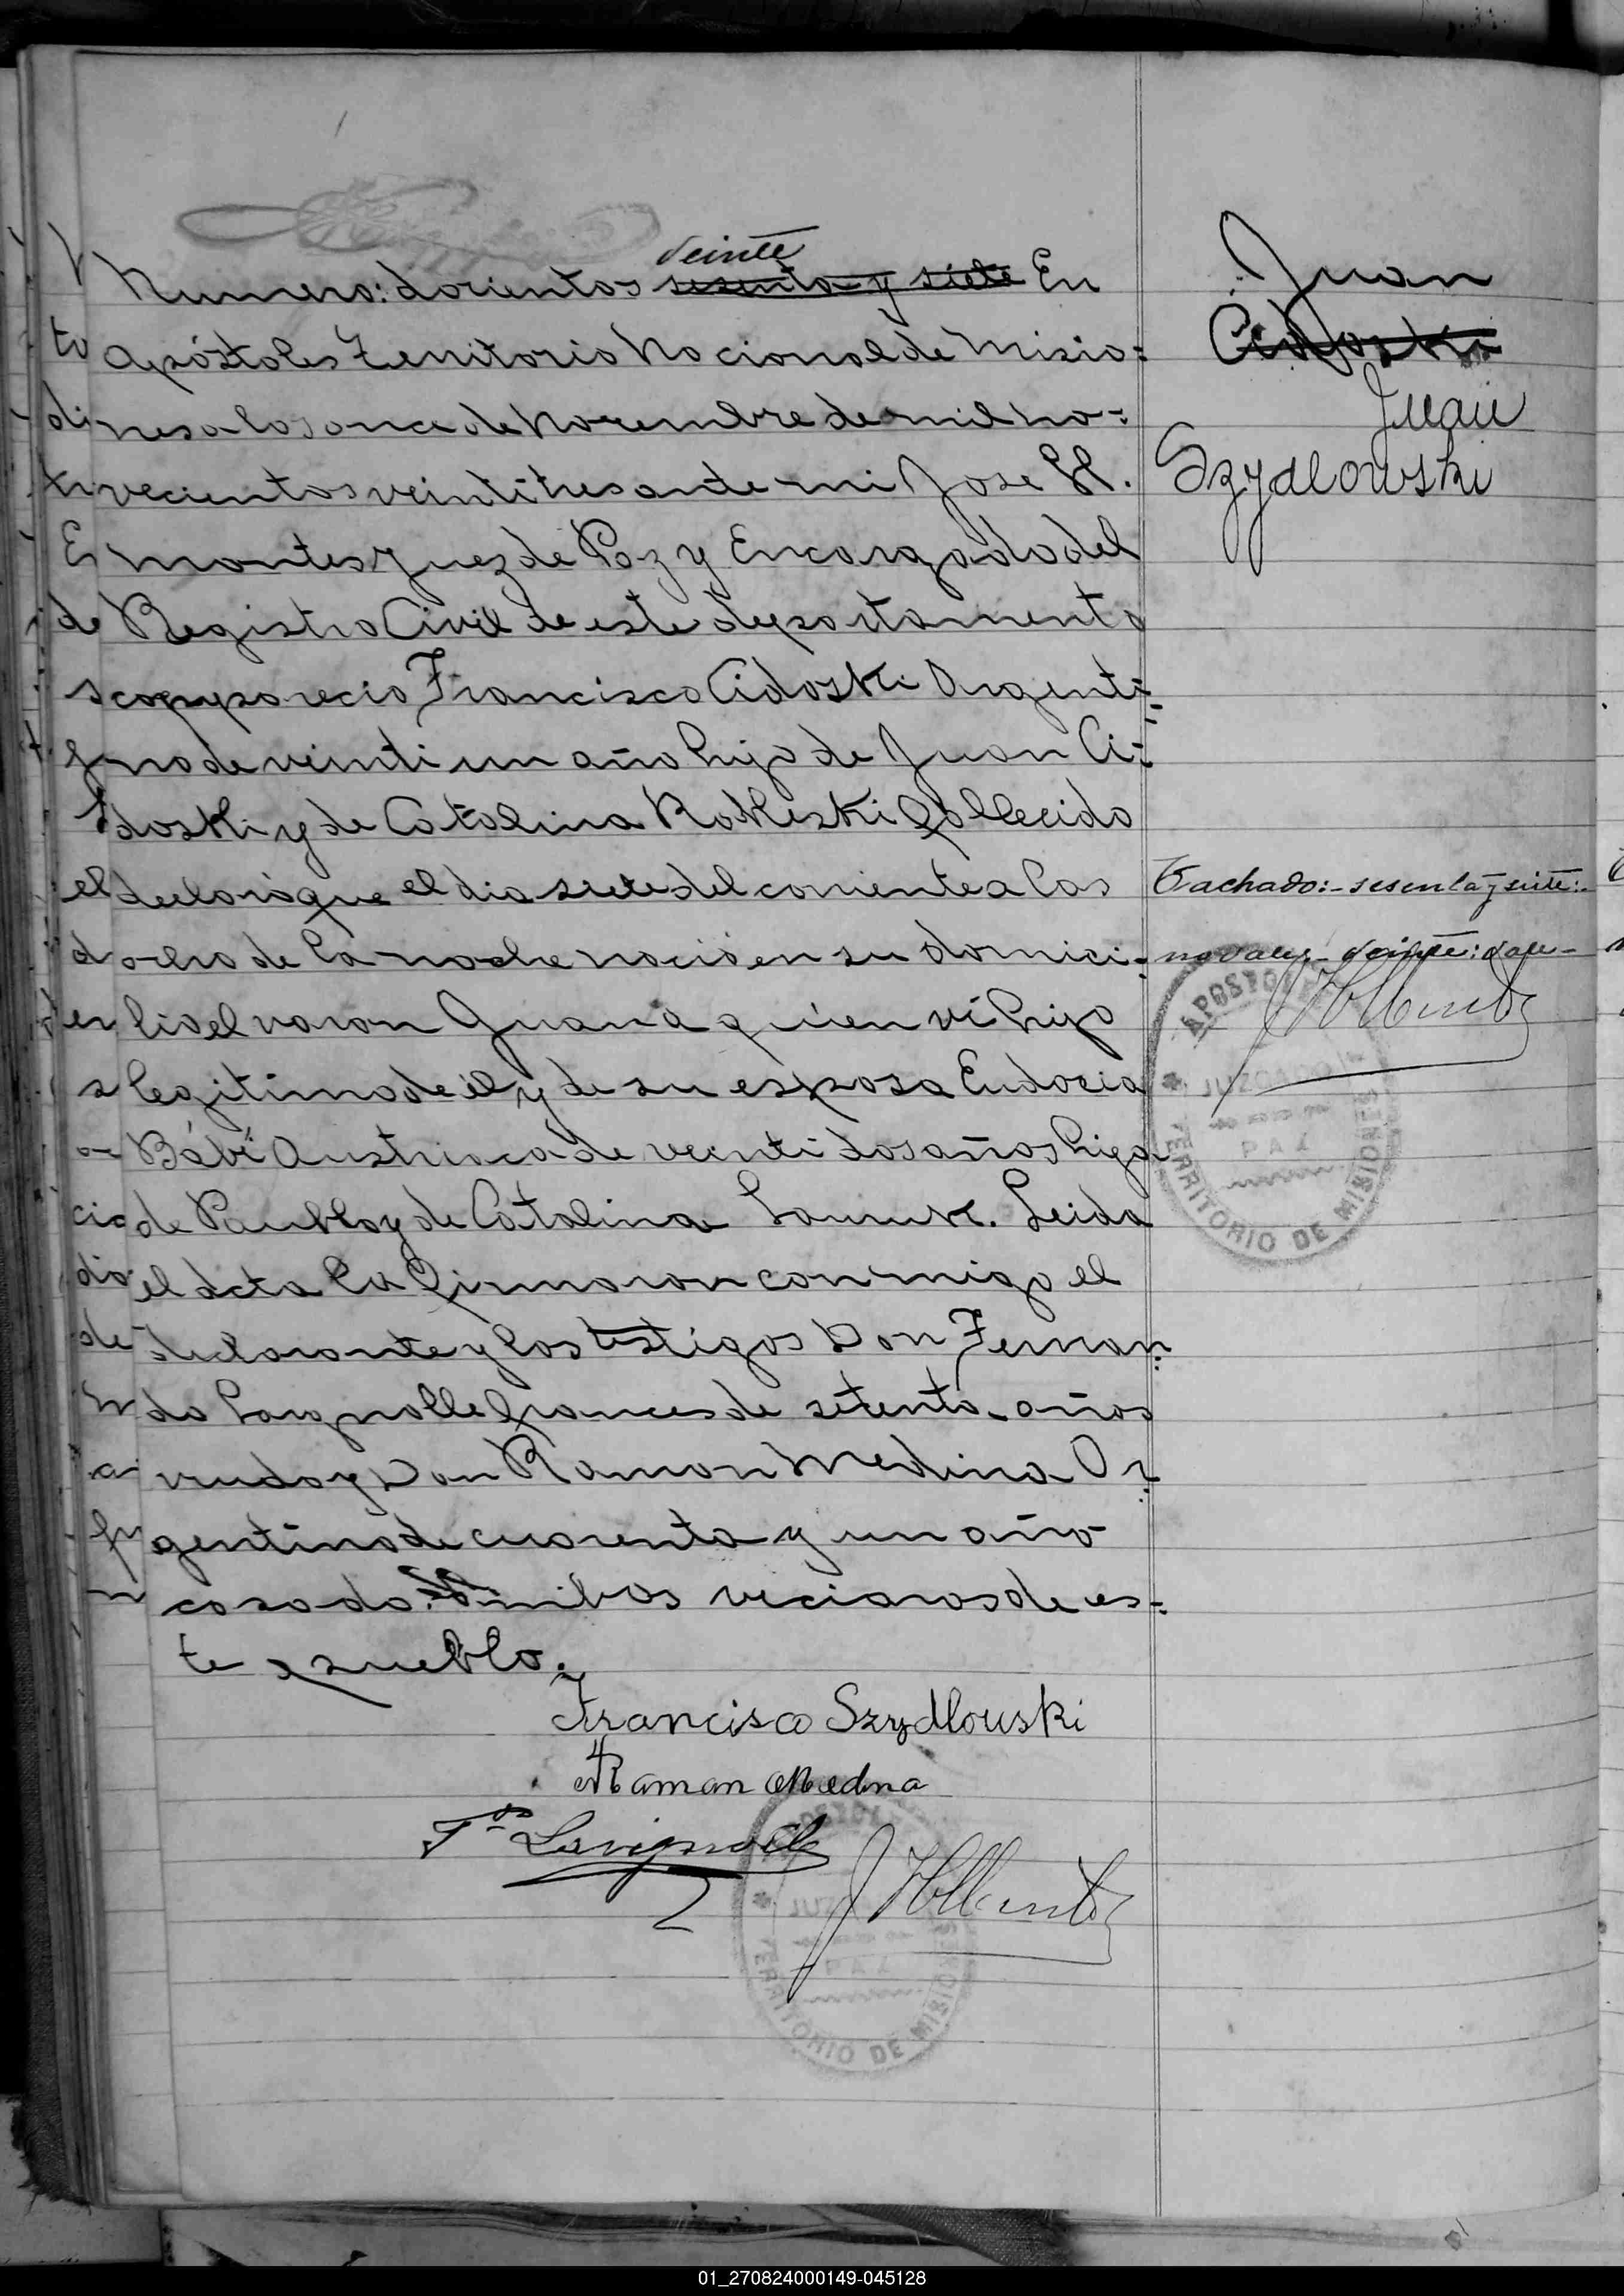 Numero: docientos veinte sesenta y siete En
Apóstoles Territorio Nacional de Misio=
nes a los once de Novembre de mil no=
vecientos veintitres ante mi Jose H.
Montes Juez de Paz y Encargado del
Registro Civil de este departamento
compparecio Francisco Cidoski Argenti=
no de veinti un año hijo de Juan Ci=
doski y de Catalina Rokleski fallecido
declaró que el dia siete del corriente a las
ocho de la noche nació en su domici=
lio el varon Juan a quien ví hijo
legitimo de él y de su esposa Eudocia
Bábi Austriaca de veinti dos años hija
de Paublo y de Catalina Leida
el acta la firmaron conmigo el
declarante y los testigos Don Fernan=
do Lavgnolle frances de setenta años
viudo y Don Ramon Medina Ar=
gentino de cuarenta y un año
casado. Ambos vecianos de es=
te pueblo.
Francisco Szydlouski
Raman Medna
F.do Lavignolle
J H Montes
Juan
Cidoski
Juan
Szydlowski
Tachado:- sesenta y siete:-
no vale,- veinte: vale-
J H Montes
APOSTOLES
JUZGADO
PAZ
TERRITORIO DE MISIONES
JUZ
PAZ
TERRITORIO DE MISIONES
to
di
E
de
el
d
en
a
cio
dio
de
a
01_270824000149-045128